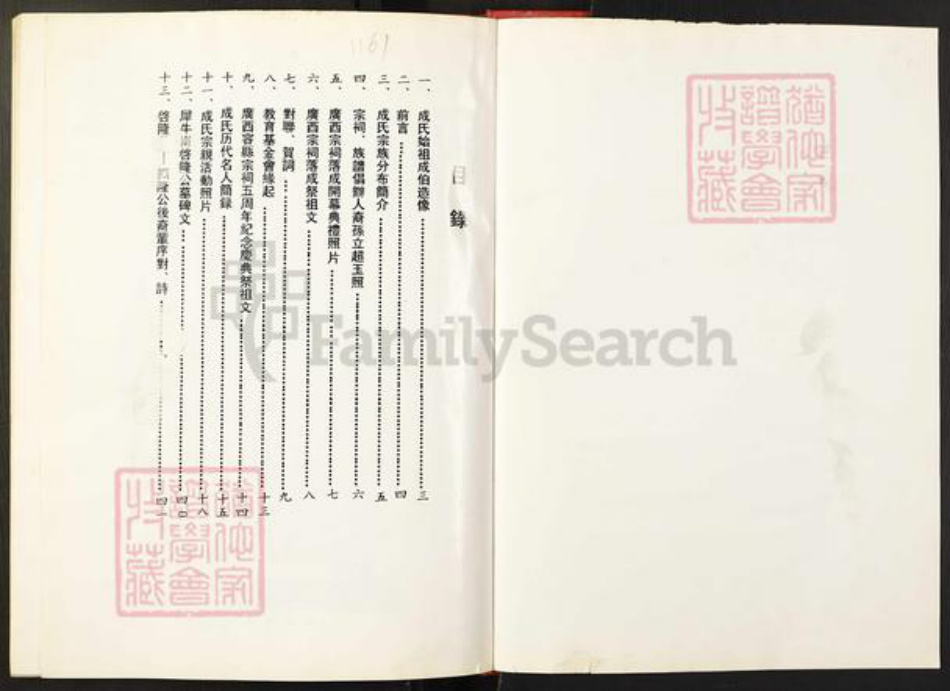 1161
目錄
一、成氏始祖成伯造像……三
二、前言……四
三、成氏宗族分布簡介……五
四、宗祠、族譜倡辦人裔孫立超玉照……六
五、廣西宗祠落成開幕典禮照片……七
六、廣西宗祠落成祭祖文……八
七、對聯、賀詞……九
八、教育基金會緣起……十三
九、廣西容縣宗祠五周年紀念慶典祭祖文……十四
十、成氏历代名人簡録……十五
十一、成氏宗親活動照片……十八
十二、犀牛 啓隆公墓碑文……四〇
十三、啓隆 隆公後裔輩序對、詩……四一
FamilySearch
家譜學會收藏
家譜學會收藏